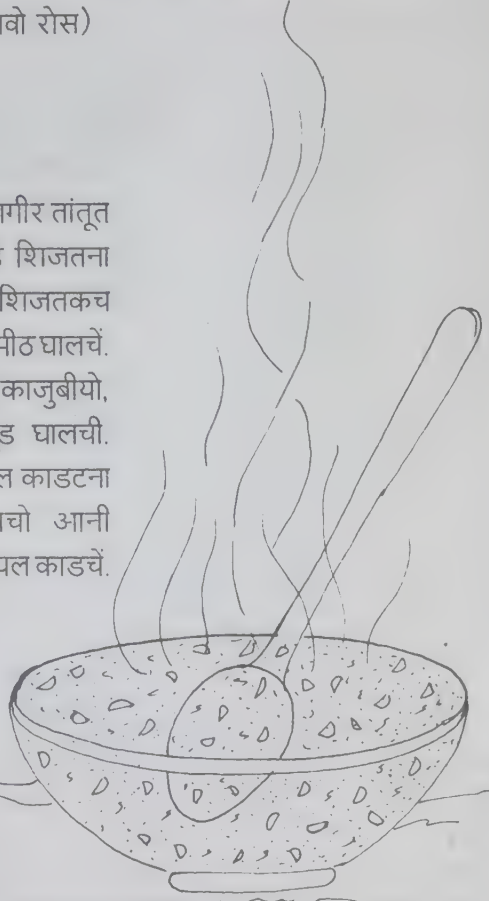 वो रोस)
गीर तांतूत
शिजतना
शिजतकच
मीठ घालचें.
काजुबीयो,
ड घालची.
ल काडटना
चो आनी
पल काडचें.